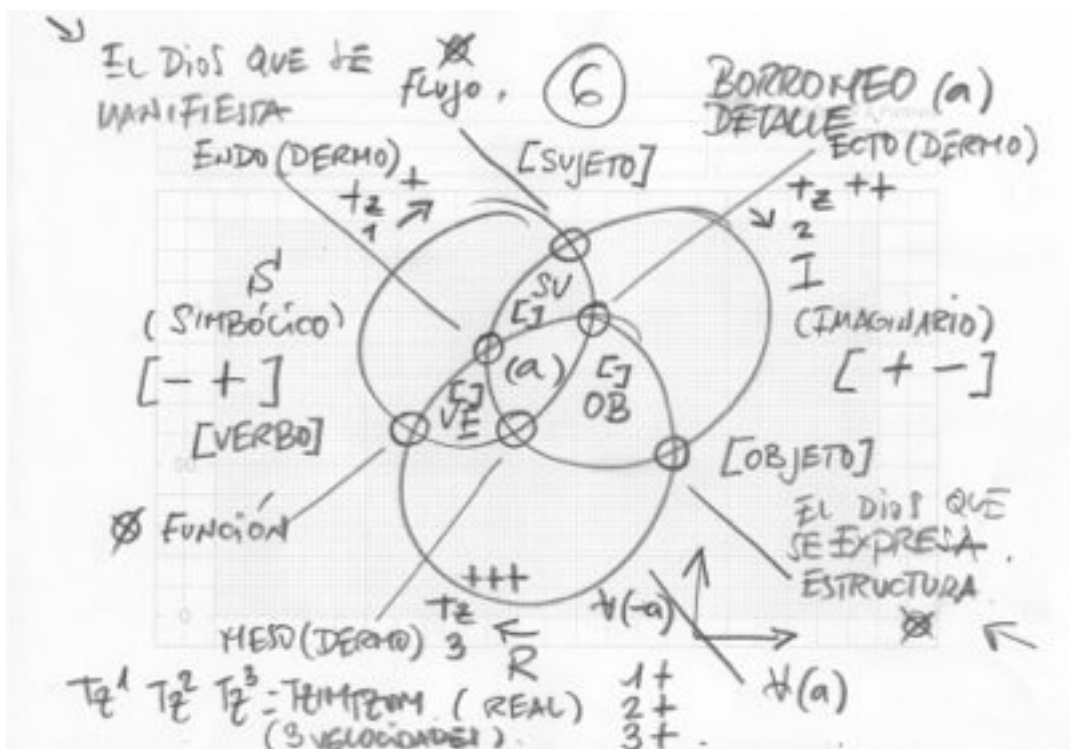 EL DIOS QUE SE
MANIFIESTA
FLUJO.
6
BORROMEO (a)
DETALLE
ENDO (DERMO)
[SUJETO]
ECTO (DERMO)
+z +
1
+z ++
2
S
(SIMBÓLICO)
[- +]
[VERBO]
I
(IMAGINARIO)
[+ -]
[OBJETO]
SU
[]
(a)
[]
VE
[]
OB
FUNCIÓN
EL DIOS QUE
SE EXPRESA.
ESTRUCTURA
+++
Tz
3
MESO (DERMO)
R
∀(-a)
∀(a)
Tz¹ Tz² Tz³ = TZIMTZUM. (REAL)
(3 VELOCIDADES).
1+
2+
3+.